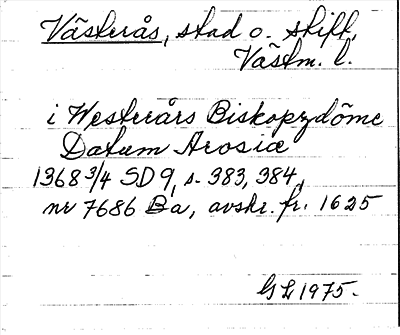 Västerås, stad o. stift,
Västm. l.
i Westerårs Biskopzdöme
Datum Arosiæ
1368 3/4 SD 9, s. 383, 384,
nr 7686 Ba, avskr. fr. 1625
GL 1975.